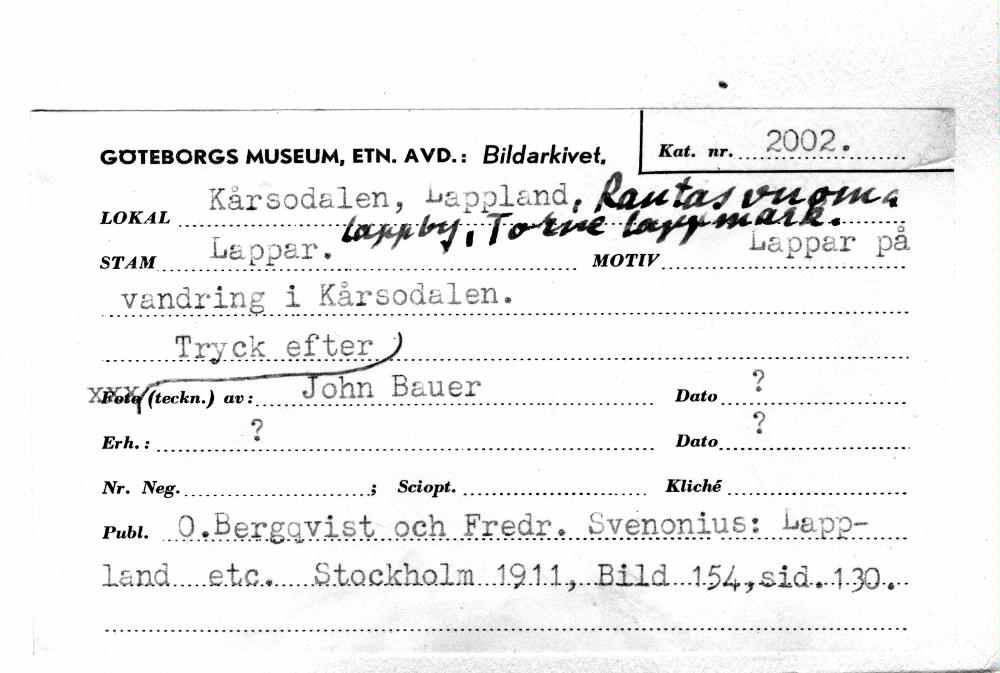 GÖTEBORGS MUSEUM, ETN. AVD.: Bildarkivet.
Kat. nr. 2002.
LOKAL Kårsodalen, Lappland, Rautasvuoma
lappby, Torne lappmark.
STAM Lappar. MOTIV Lappar på
vandring i Kårsodalen.
Tryck efter
xxx Foto (teckn.) av: John Bauer Dato ?
Erh.: ? Dato ?
Nr. Neg. ; Sciopt. Kliché
Publ. O.Bergqvist och Fredr. Svenonius: Lapp-
land etc. Stockholm 1911, Bild 154,sid.130.